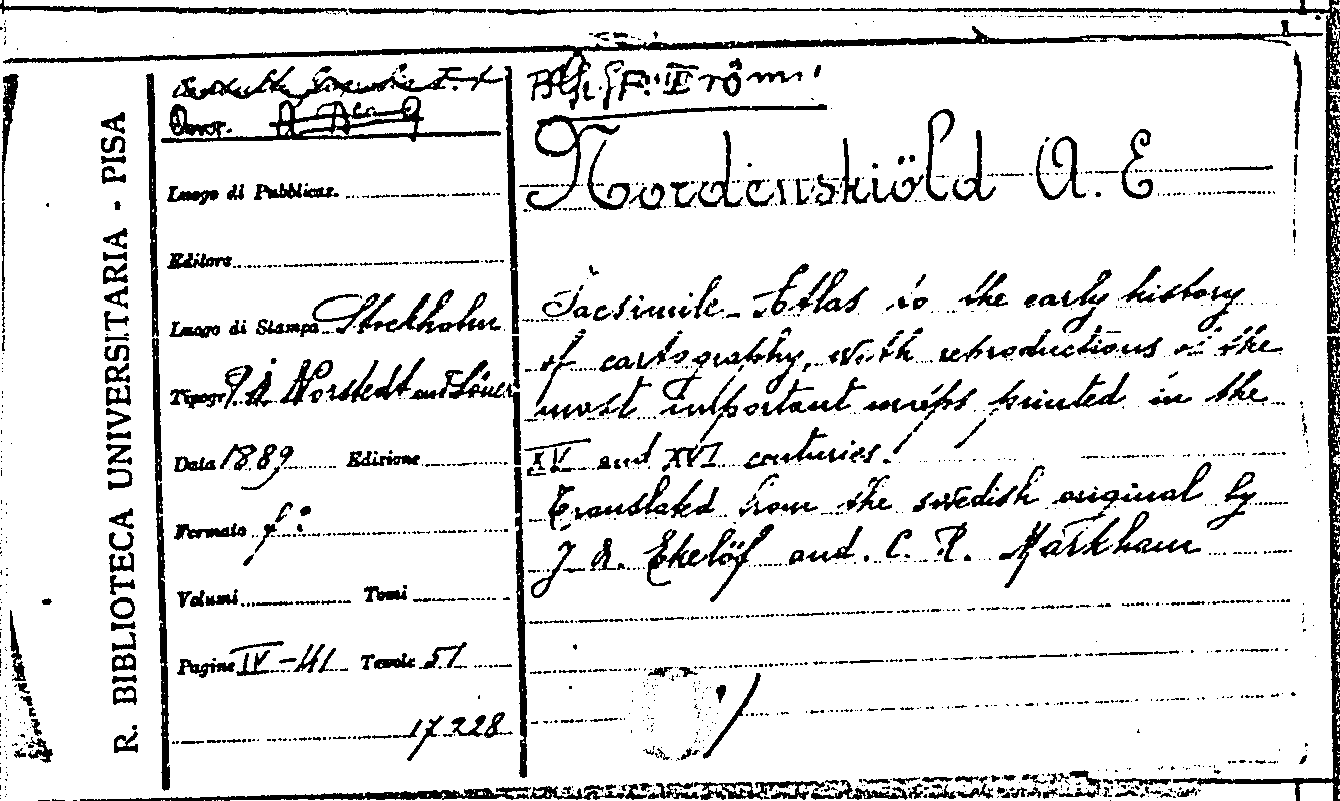 R. BIBLIOTECA UNIVERSITARIA - PISA
Luogo di Pubblicaz.
Editore
Luogo di Stampa Stockholm
Tipogr. P. A. Norstedt and Söner
Data 1889 Edizione
Formato f:
Volumi Tomi
Pagine IV-141 Tavole 51
17228
Nordenskiöld A. E
Facsimile-Atlas to the early history
of cartography, with reproductions of the
most important maps printed in the
XV and XVI centuries.
Translated from the swedish original by
J. A. Ekelöf and. C. R. Markham